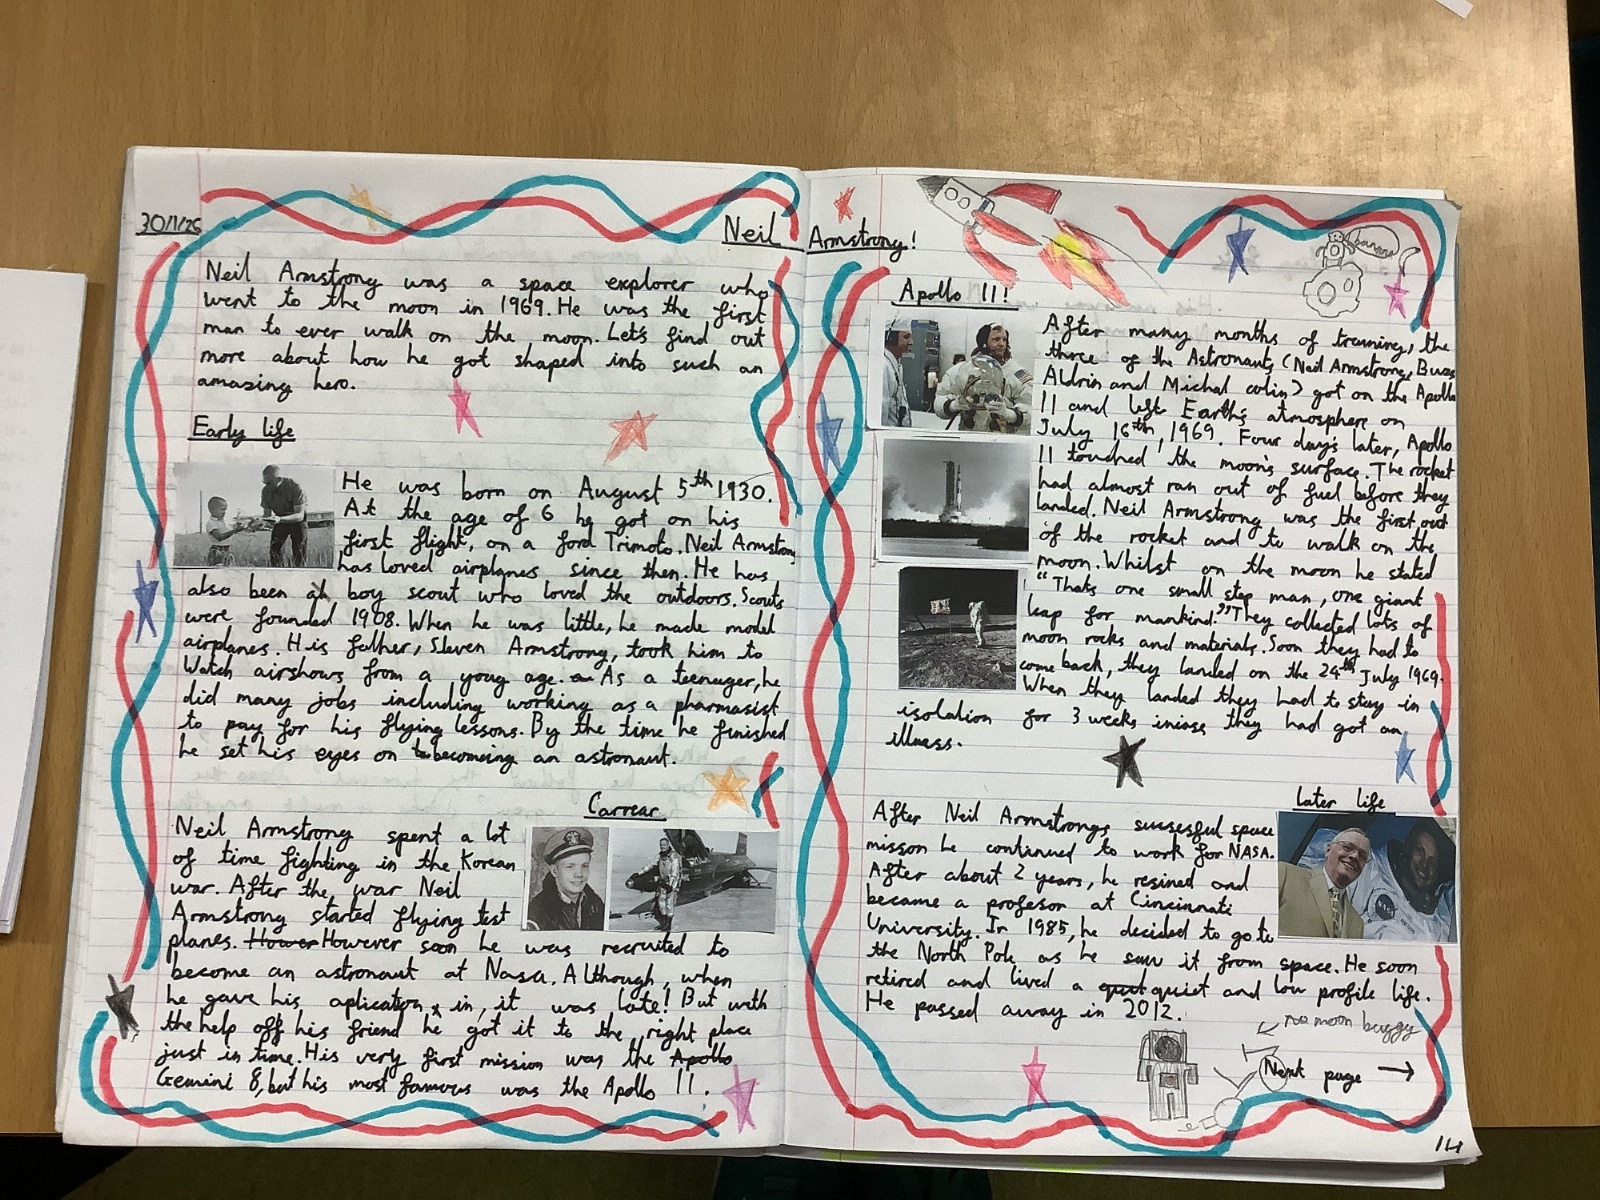 30/1/26
Neil Armstrong!
Neil Armstrong was a space explorer who
went to the moon in 1969. He was the first
man to ever walk on the moon. Let's find out
more about how he got shaped into such an
amazing hero.
Early life
He was born on August 5th 1930.
At the age of 6 he got on his
first flight, on a ford Trimoto. Neil Armstrong
has loved airplanes since then. He has
also been a boy scout who loved the outdoors. Scouts
were founded 1908. When he was little, he made model
airplanes. His father, Steven Armstrong, took him to
Watch airshows from a youg age. As a teenager, he
did many jobs including working as a pharmasist
to pay for his flying lessons. By the time he finished
he set his eyes on becomeing an astronaut.
Carrear
Neil Armstrong spent a lot
of time fighting in the Korean
war. After the war Neil
Armstrong started flying test
planes. Hower However soon he was recruited to
become an astronaut at Nasa. Although, when
he gave his aplication in, it was late! But with
the help off his friend he got it to the right place
just in time. His very first mission was the Apollo
Gemini 8, but his most famous was the Apollo 11.
Apollo 11!
After many months of training, the
three of the Astronauts (Neil Armstrong, Buzz
Aldrin and Michal colin) got on the Apollo
11 and left Earth's atmosphere on
July 16th, 1969. Four day's later, Apollo
11 touched the moon's surface. The rocket
had almost ran out of fuel before they
landed. Neil Armstrong was the first out
of the rocket and to walk on the
moon. Whilst on the moon he stated
"Thats one small step man, one giant
leap for mankind." They collected lots of
moon rocks and materials. Soon they had to
come back, they landed on the 24th July 1969.
When they landed they had to stay in
isolation for 3 weeks incase they had got an
illness.
later life
After Neil Armstrongs sucsesful space
misson he continued to work for NASA.
After about 2 years, he resined and
became a profesor at Cincinnati
University. In 1985, he decided to go to
the North Pole as he saw it from space. He soon
retired and lived a quut quiet and low profile life.
He passed away in 2012.
banana
no moon buggy
Next page →
14